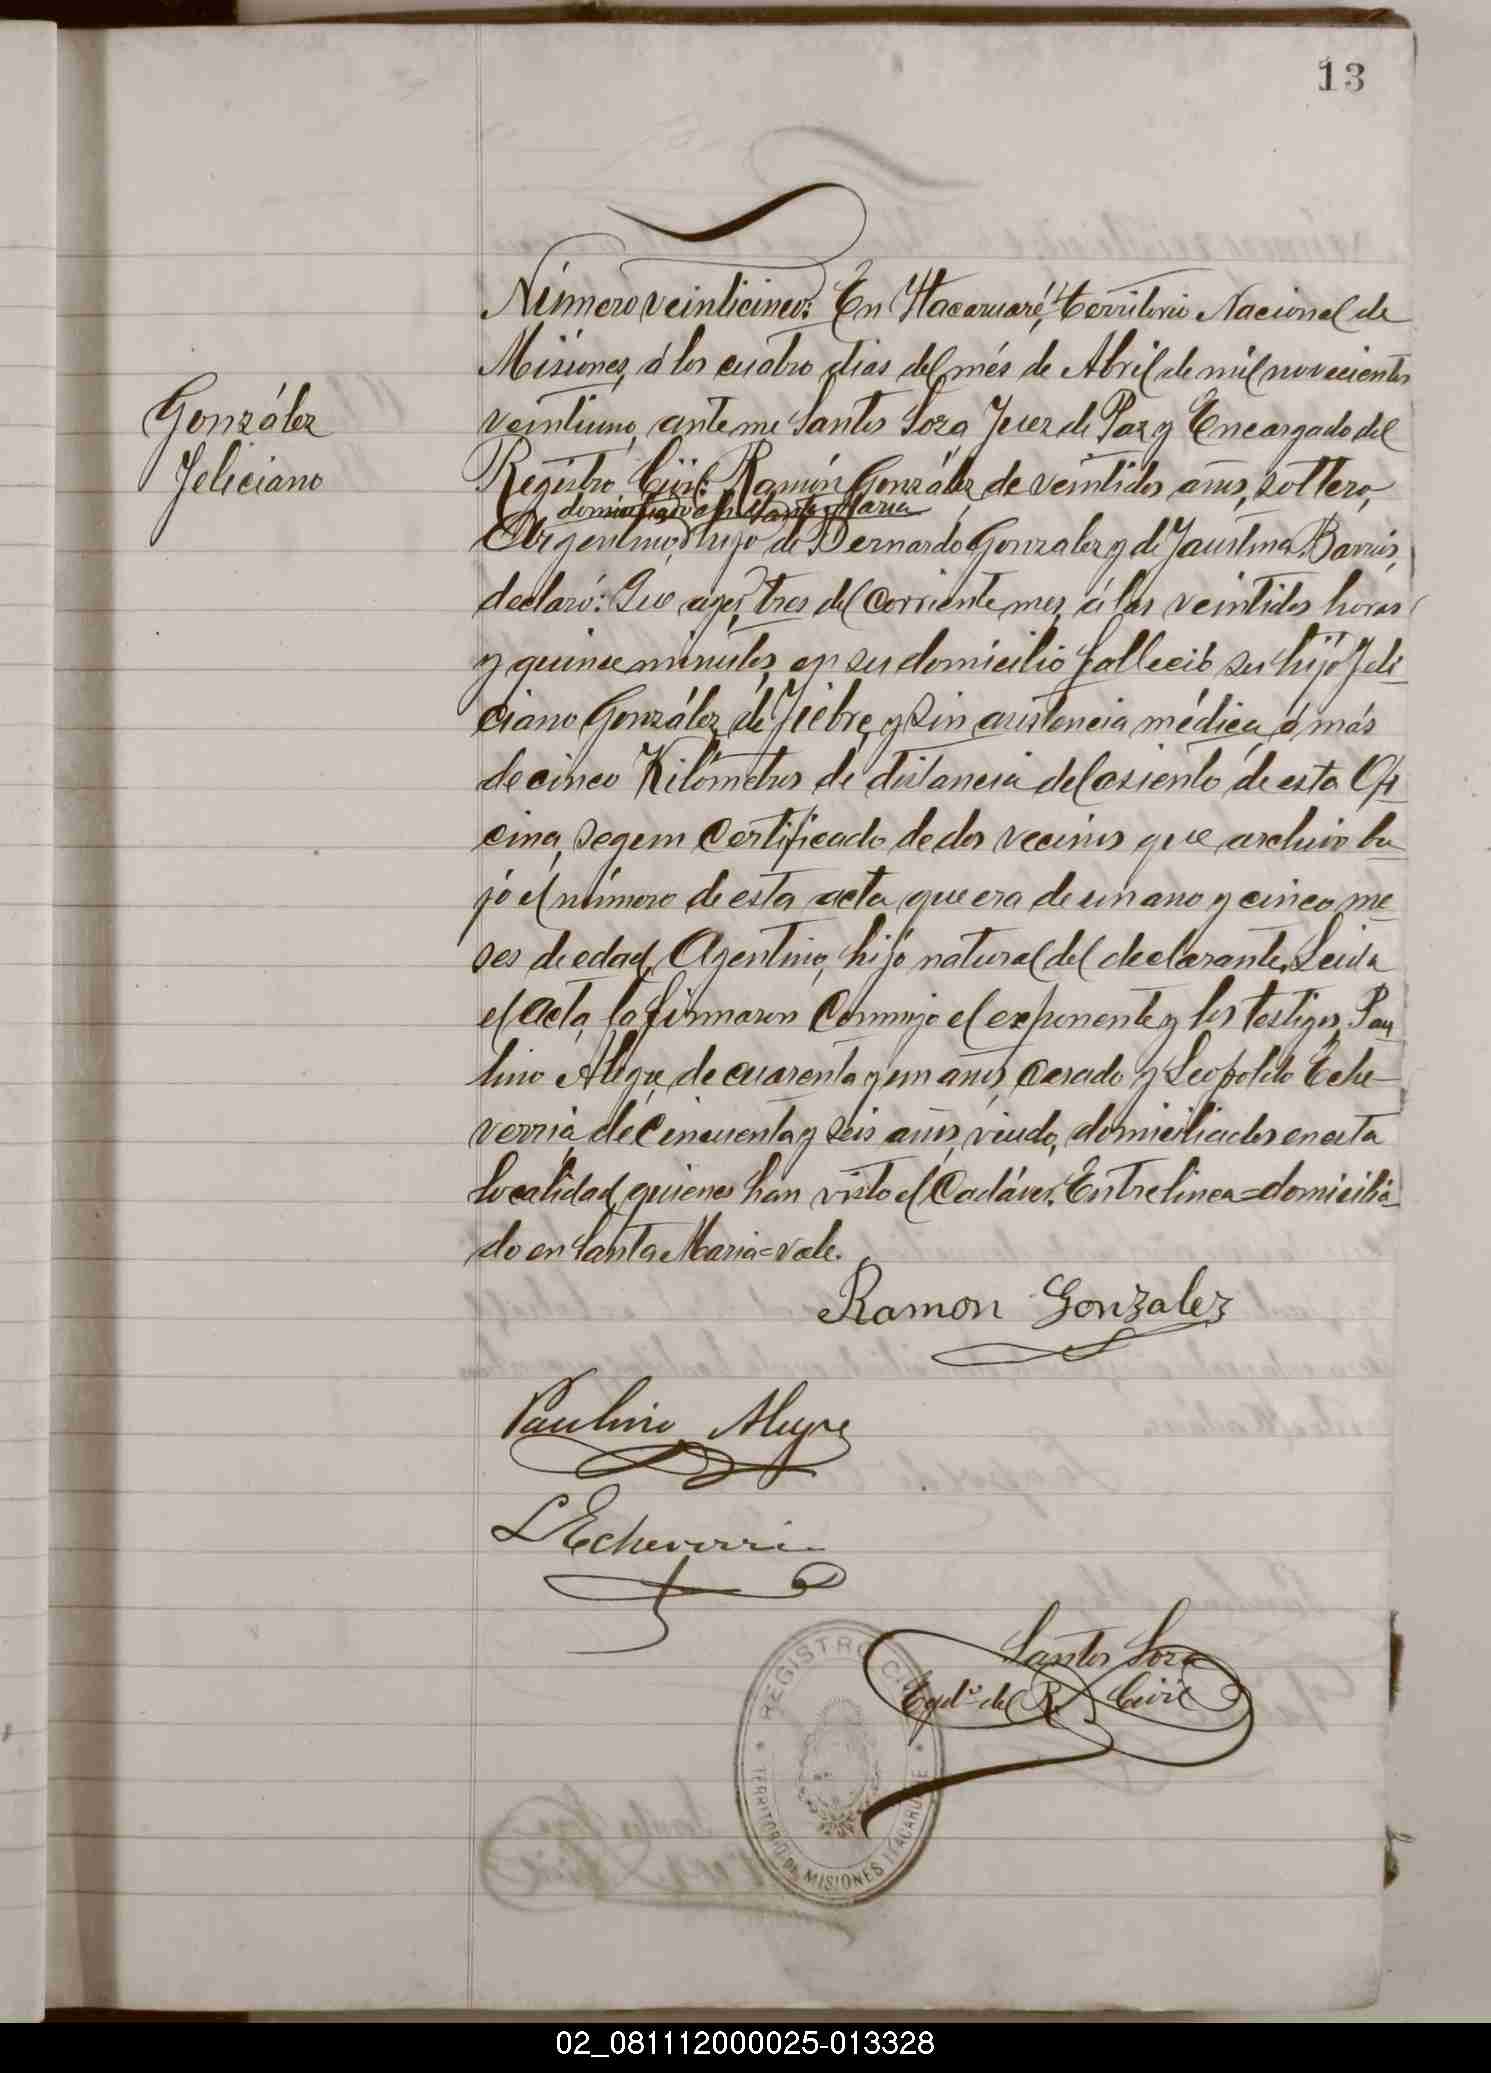 13
Número veinticinco: En Itacaruaré, territorio Nacional de
Misiones, á los cuatro dias del més de Abril de mil novecientos
veintiuno, ante me Santos Soza Juez de Paz y Encargado del
Registro Civil: Ramón González, de veintidos años, soltero,
domiciliado en Santa Maria
Argentino, hijo de Bernardo Gonzalez y de Faustina Barrios,
declaró: Que ayer, tres del corriente mes, á las veintidos horas
y quince minutos, en su domicilio falleció su hijo Feli-
ciano González, de Fiebre, y sin asistencia médica, á más
de cinco Kilómetros de distancia del asiento de esta Ofi-
cina, segun Certificado de dos vecinos que archivo ba-
jo el número de esta acta, que era de un ano y cinco me-
ses de edad, Agentino, hijo natural del declarante. Leida
el Acta, la firmaron Conmigo el exponente y los testigos, Pau-
lino Alegre, de cuarenta y un años, Casado y Leopoldo Eche-
verria, de Cincuenta y seis años, viudo, domiciliados en esta
localidad, quienes han visto el Cadáver. Entrelinea=domicilia-
do en Santa Maria=vale.
González
Feliciano
Ramon Gonzalez
Paulino Alegre
L Echeverria
Santos Soza
Egdo. del R. Civil
REGISTRO CIVIL
TERRITORIO DE MISIONES ITACARUARE
02_081112000025-013328